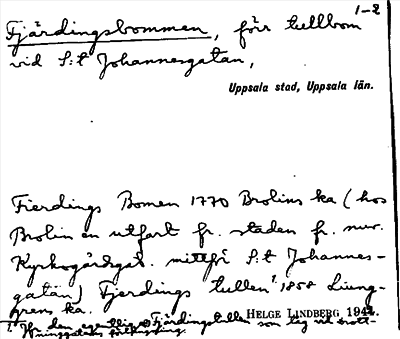 1-2
Fjärdingsbommen, förr tullbom
vid S:t Johannesgatan,
Uppsala stad, Uppsala län.
Fierdings Bomen 1770 Brolins ka (hos
Brolin en utfart fr. staden fr. nuv.
Kyrkogårdsgat. mittför S:t Johannes-
gatan) Fjerdings tullen¹ 1858 Ljung-
grens ka.
HELGE LINDBERG 1941.
¹ den egentliga Fjärdingstullen som låg vid